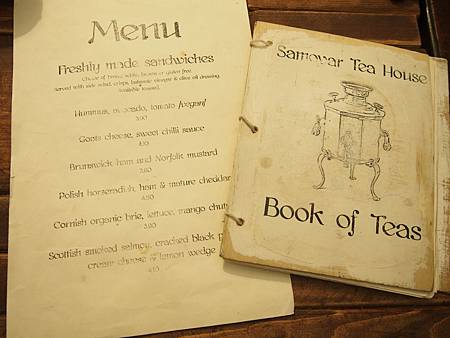 Menu
Freshly made sandwiches
Choose of brown, white, brown or gluten free.
Served with side salad, crisps, balsamic vinegar & olive oil dressing.
Available toasted.
Hummus, avocado, tomato [vegan]
Goats cheese, sweet chilli sauce
Brunswick ham and Norfolk mustard
Polish horseradish, ham & mature cheddar
Cornish organic brie, lettuce, mango chut
Scottish smoked salmon, cracked black
cream cheese & lemon wedge
Samovar Tea House
Book of Teas